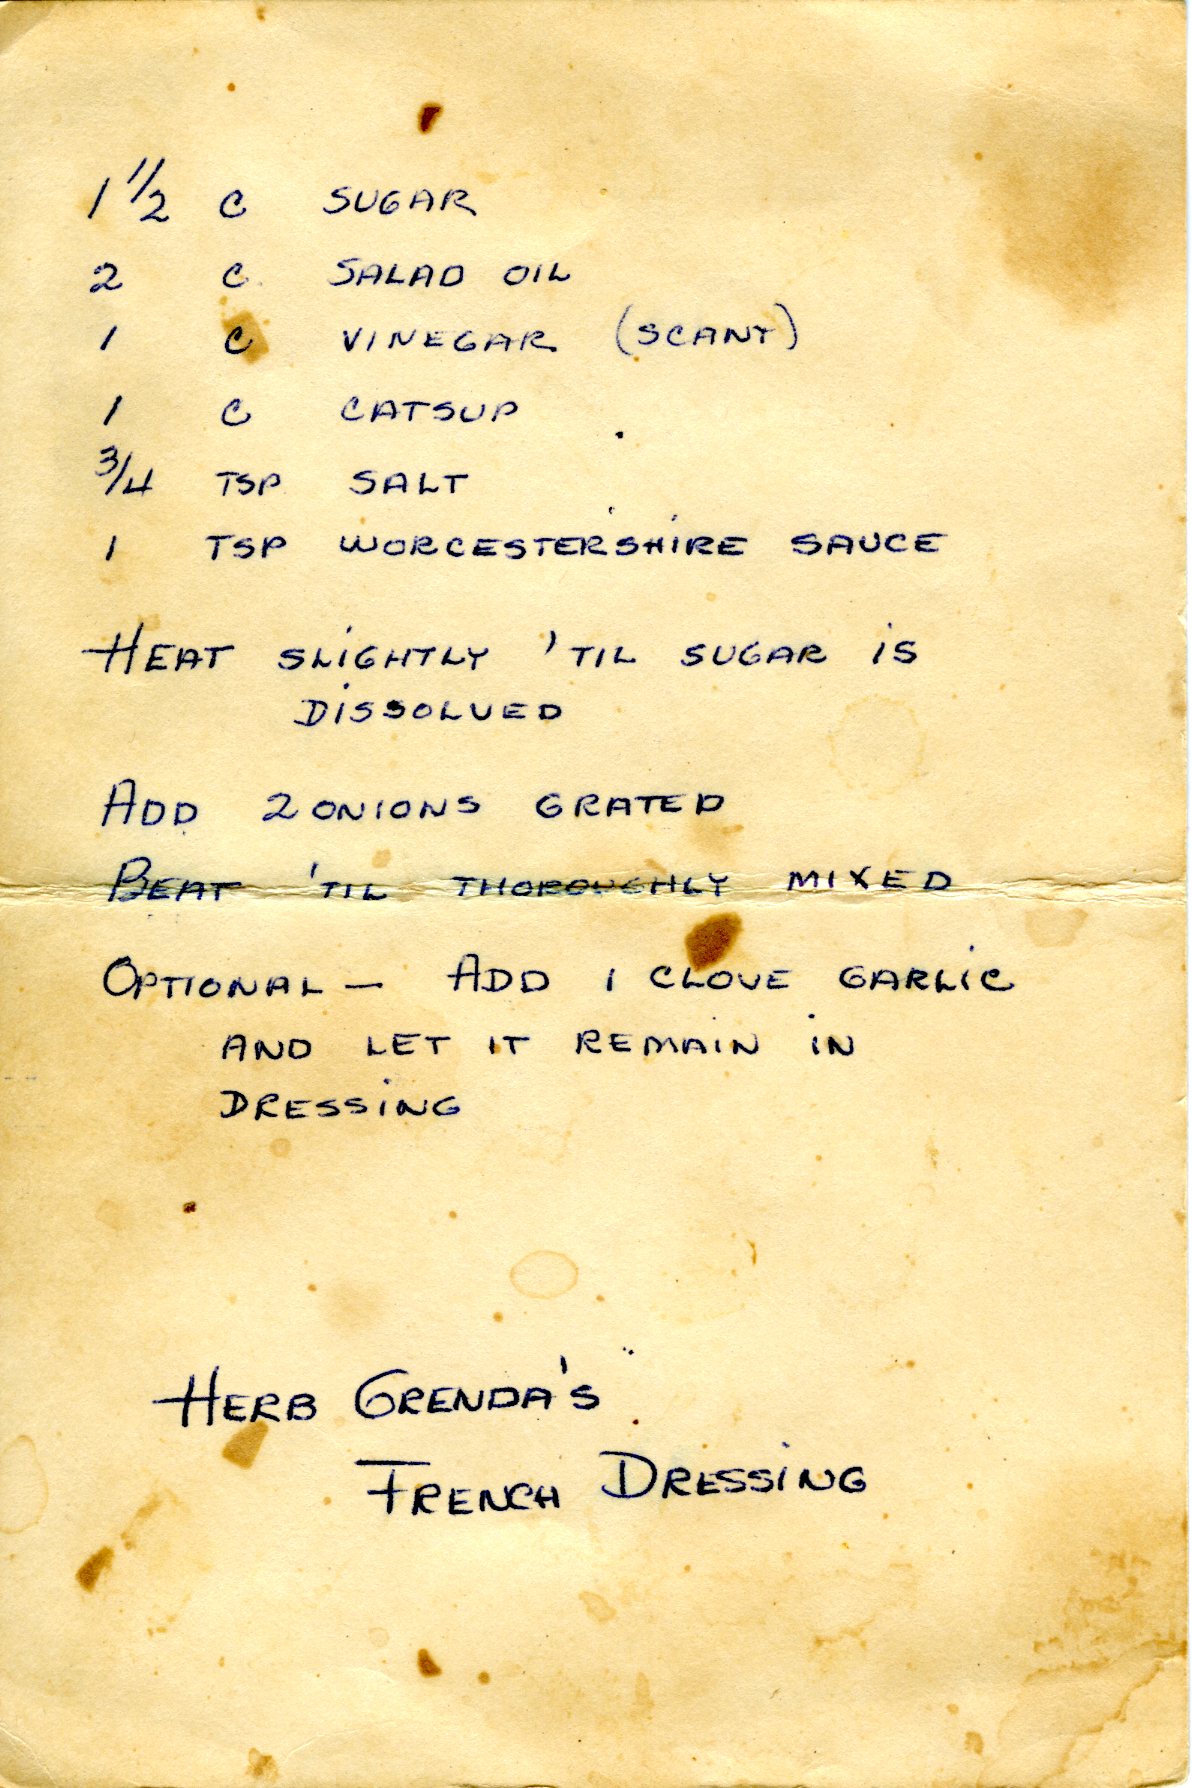 1 1/2 C SUGAR
2 C SALAD OIL
1 C VINEGAR (SCANT)
1 C CATSUP
3/4 TSP SALT
1 TSP WORCESTERSHIRE SAUCE
HEAT SLIGHTLY 'TIL SUGAR IS
DISSOLVED
ADD 2 ONIONS GRATED
BEAT 'TIL THOROUGHLY MIXED
OPTIONAL — ADD 1 CLOVE GARLIC
AND LET IT REMAIN IN
DRESSING
HERB GRENDA'S
FRENCH DRESSING